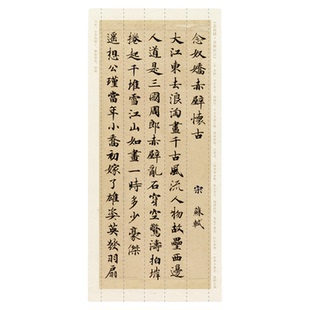 念奴嬌赤壁懷古
宋 蘇軾
大江東去浪淘盡千古風流人物故壘西邊
人道是三國周郎赤壁亂石穿空驚濤拍岸
捲起千堆雪江山如畫一時多少豪傑
遙想公瑾當年小喬初嫁了雄姿英發羽扇